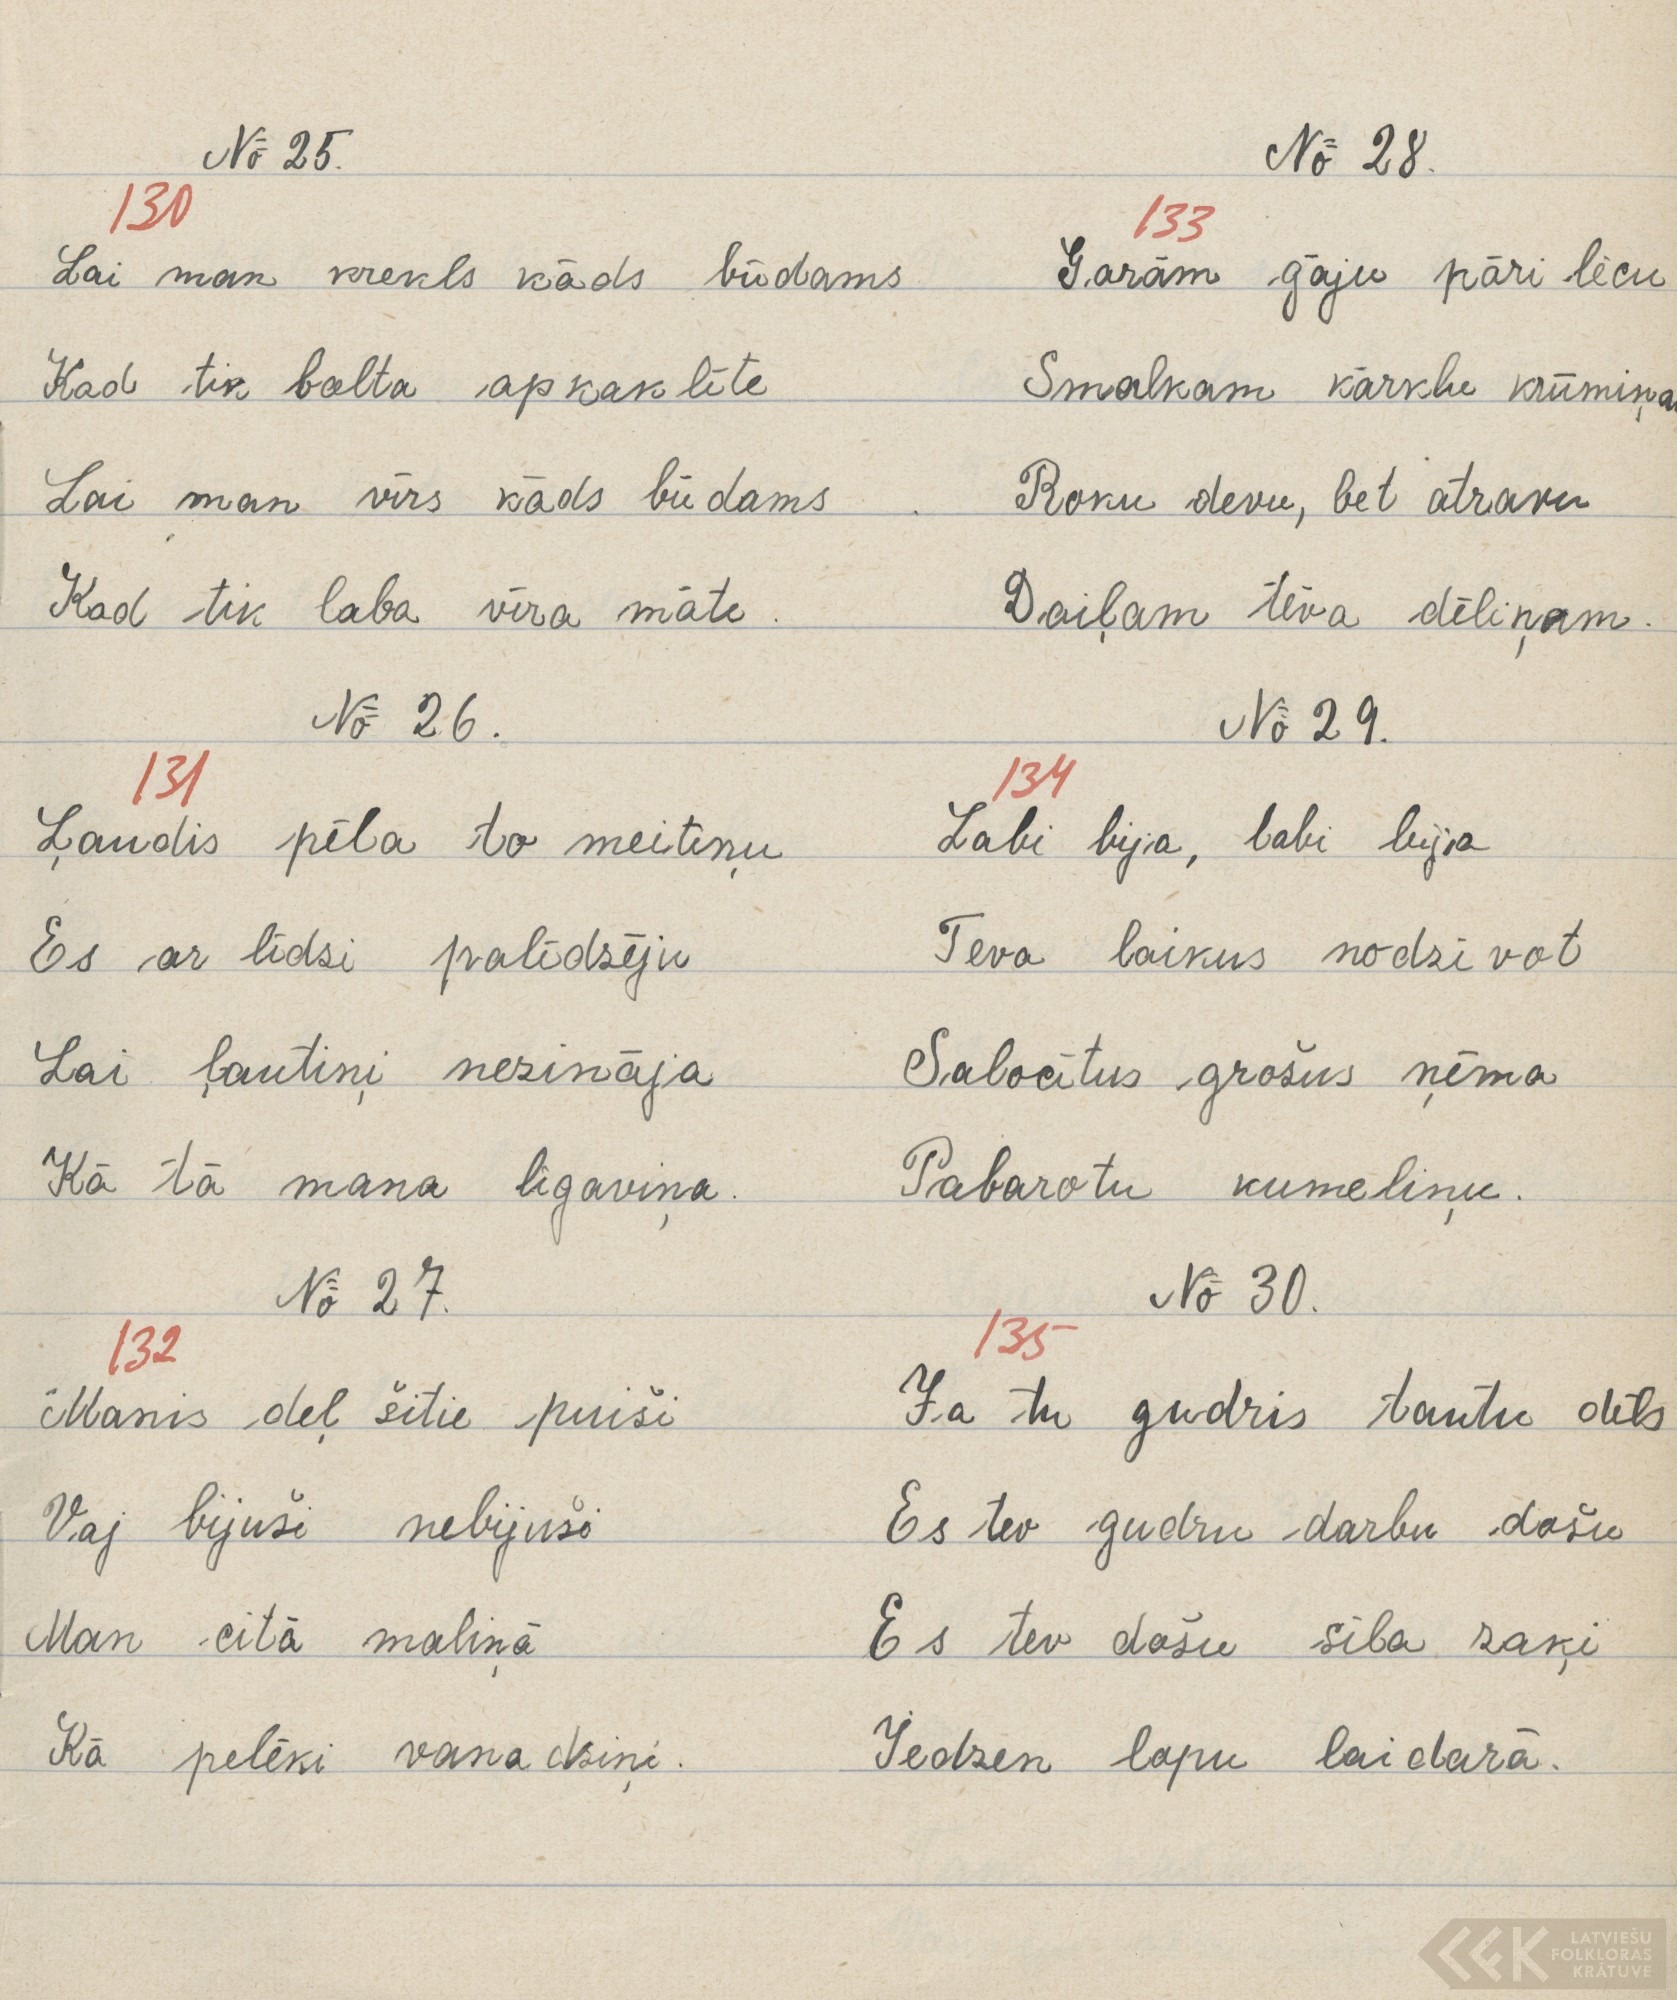 № 25.
130
Lai man krekls kāds būdams
Kad tik balta apkaklīte
Lai man vīrs kāds būdams
Kad tik laba vīra māte.
№ 26.
131
Ļaudis pēla to meitiņu
Es ar līdzi palīdzēju
Lai ļautiņi nezināja
Kā tā mana līgaviņa.
№ 27.
132
Manis deļ šitie puiši
Vaj bijuši nebijuši
Man citā maliņā
Kā pelēki vanadziņi.
№ 28.
133
Garām gāju pāri lēcu
Smalkam kārklu krūmiņam
Roku devu, bet atravu
Daiļam tēva dēliņam.
№ 29.
134
Labi bija, labi bija
Teva laikus nodzīvot
Salocītus grošus ņēma
Pabarotu kumeliņu.
№ 30.
135
Ja tu gudris tautu dēls
Es tev gudru darbu došu
Es tev došu sila zaķi
Iedzen lopu laidarā.
LATVIEŠU
FOLKLORAS
KRĀTUVE